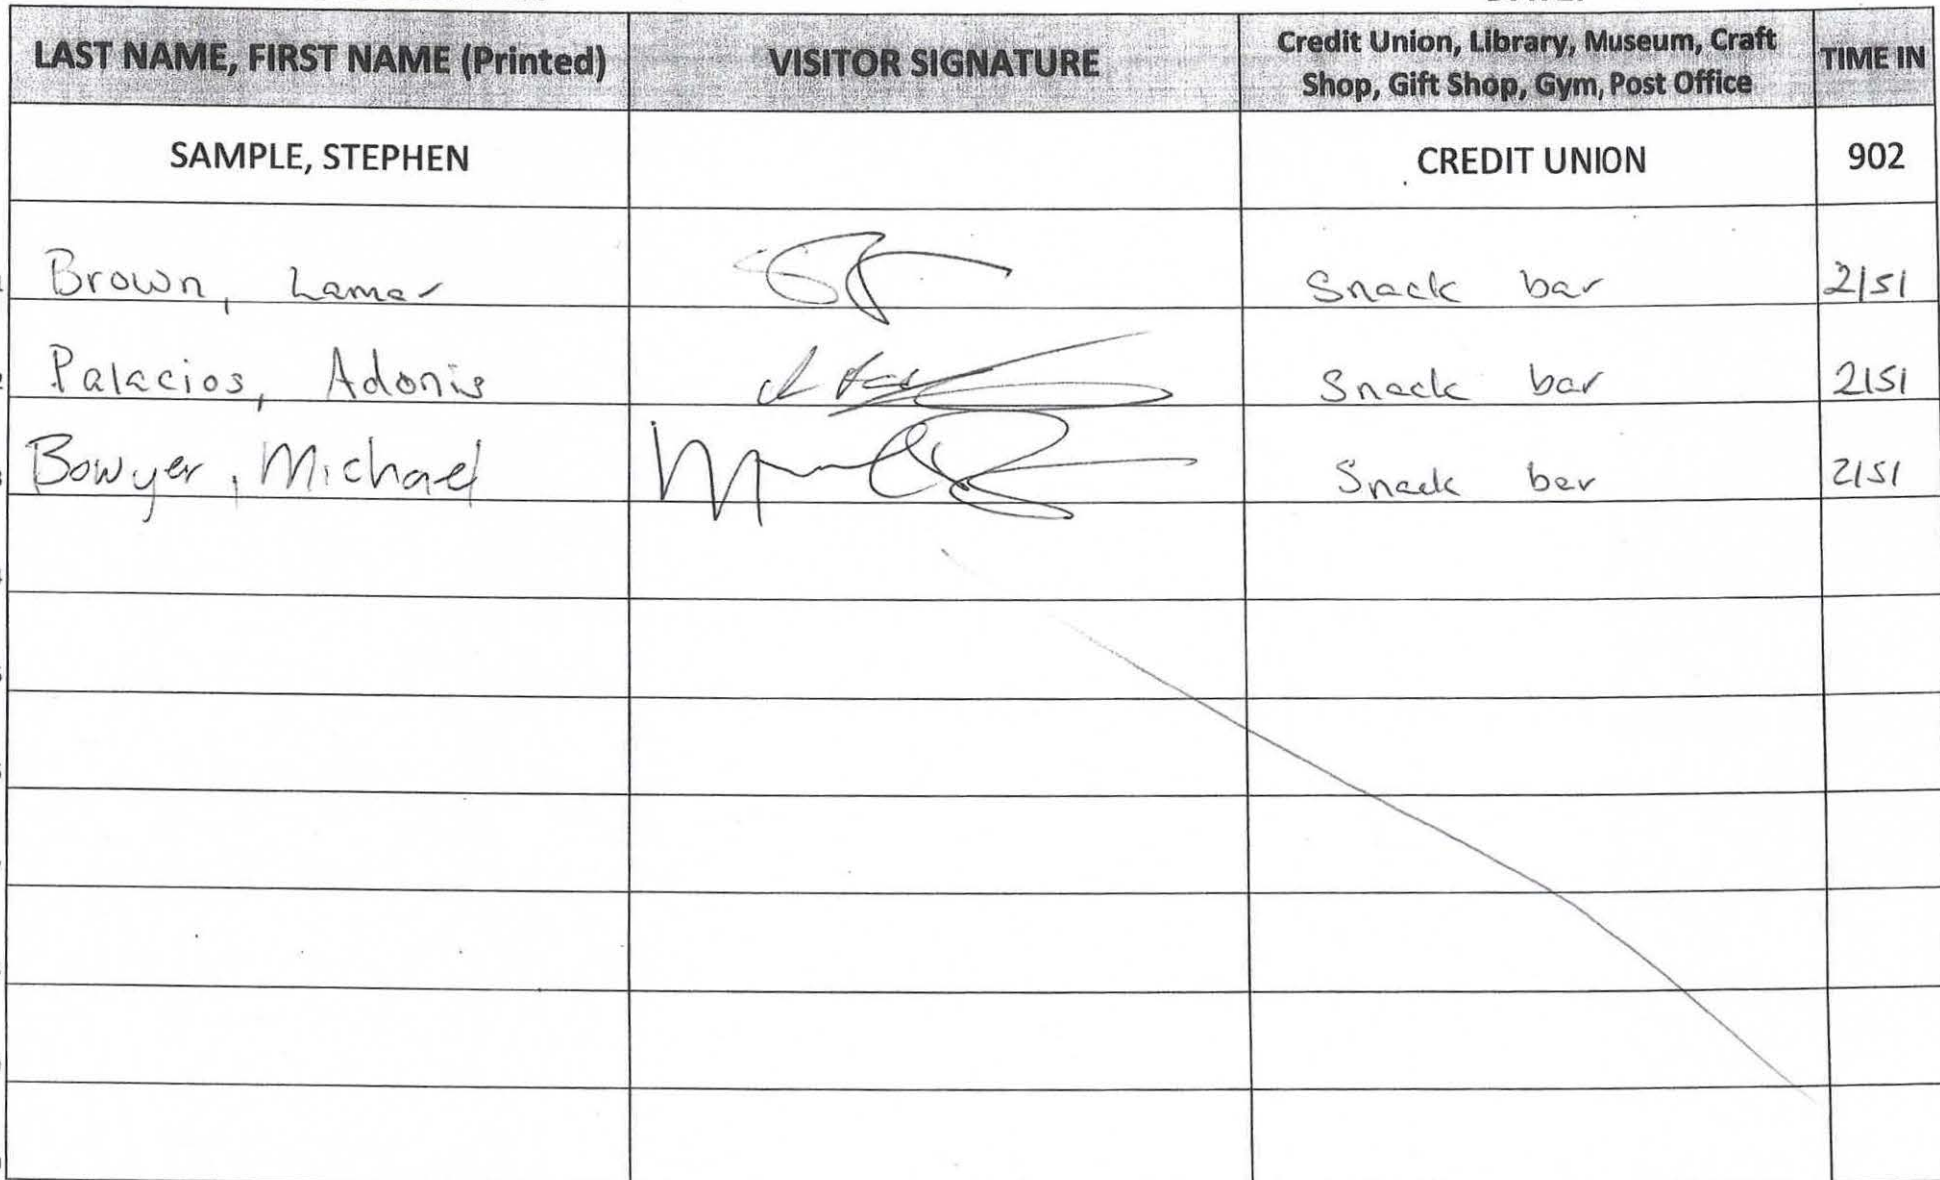 LAST NAME, FIRST NAME (Printed) VISITOR SIGNATURE Credit Union, Library, Museum, Craft Shop, Gift Shop, Gym, Post Office TIME IN
SAMPLE, STEPHEN CREDIT UNION 902
Brown, Lamar Snack bar 2151
Palacios, Adonis Snack bar 2151
Bowyer, Michael Snack bar 2151